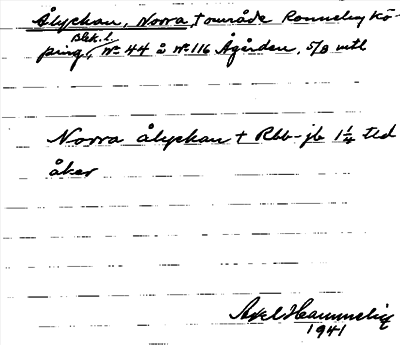 Ålyckan, Norra, † område Ronneby kö-
Blek. l.
ping, No 44 å No 116 Ågården, 5/8 mtl
Norra ålyckan † Rbb-jb 1 1/4 tld
åker
Axel
1941